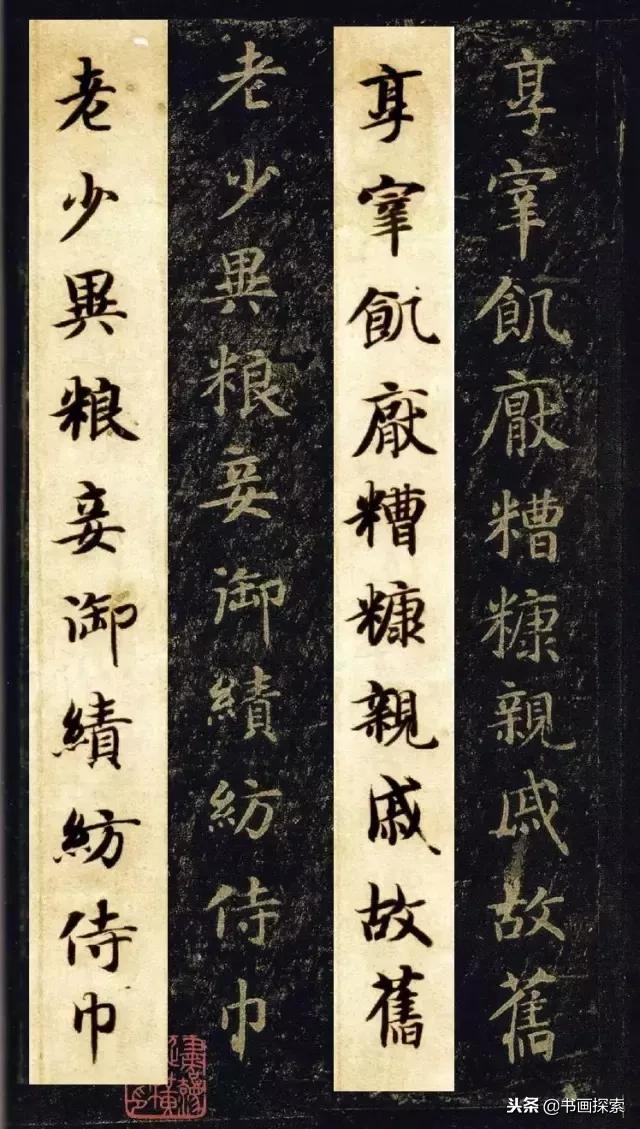 享宰飢厭糟糠親戚故舊
享宰飢厭糟糠親戚故舊
老少異粮妾御績紡侍巾
老少異粮妾御績紡侍巾
头条@书画探索